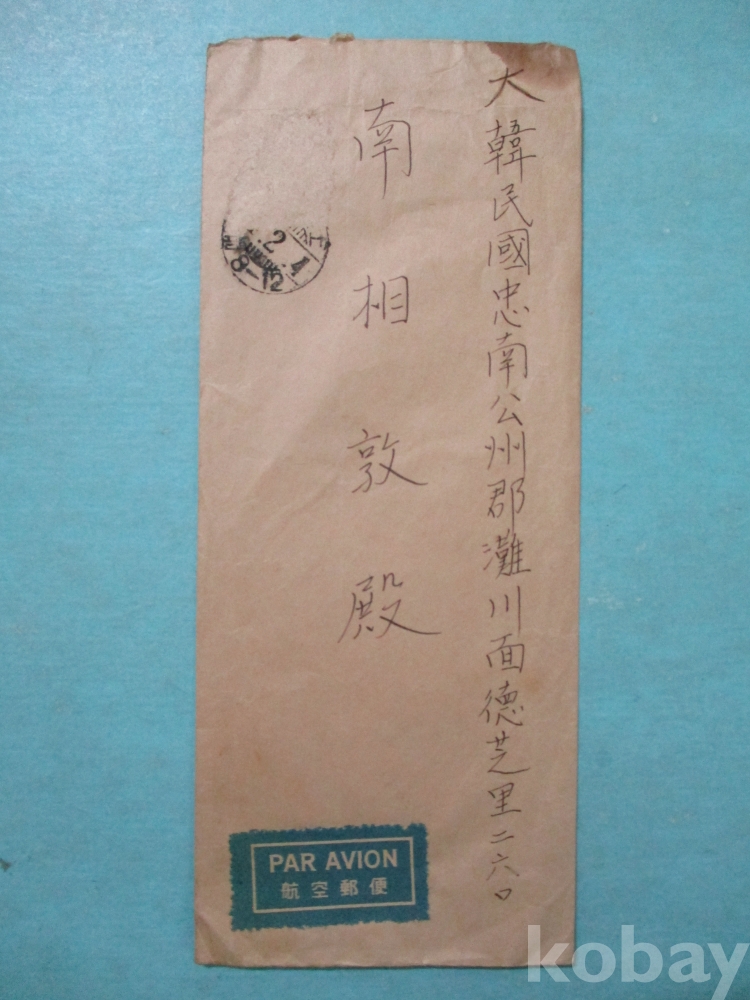 大韓民國忠南公州郡灘川面德芝里二六〇
南相敦殿
2
8-12
PAR AVION
航空郵便
kobay